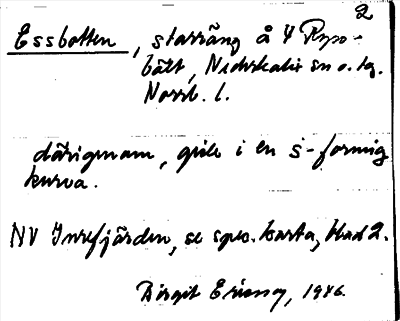 2
Essbotten, starräng å
bält, Nederkalix sn o. tg.
Norrb. l.
därigenom, går i en s-formig
kurva.
NV Inrefjärden, se spec. karta, blad 2.
Birgit Ericson, 1946.